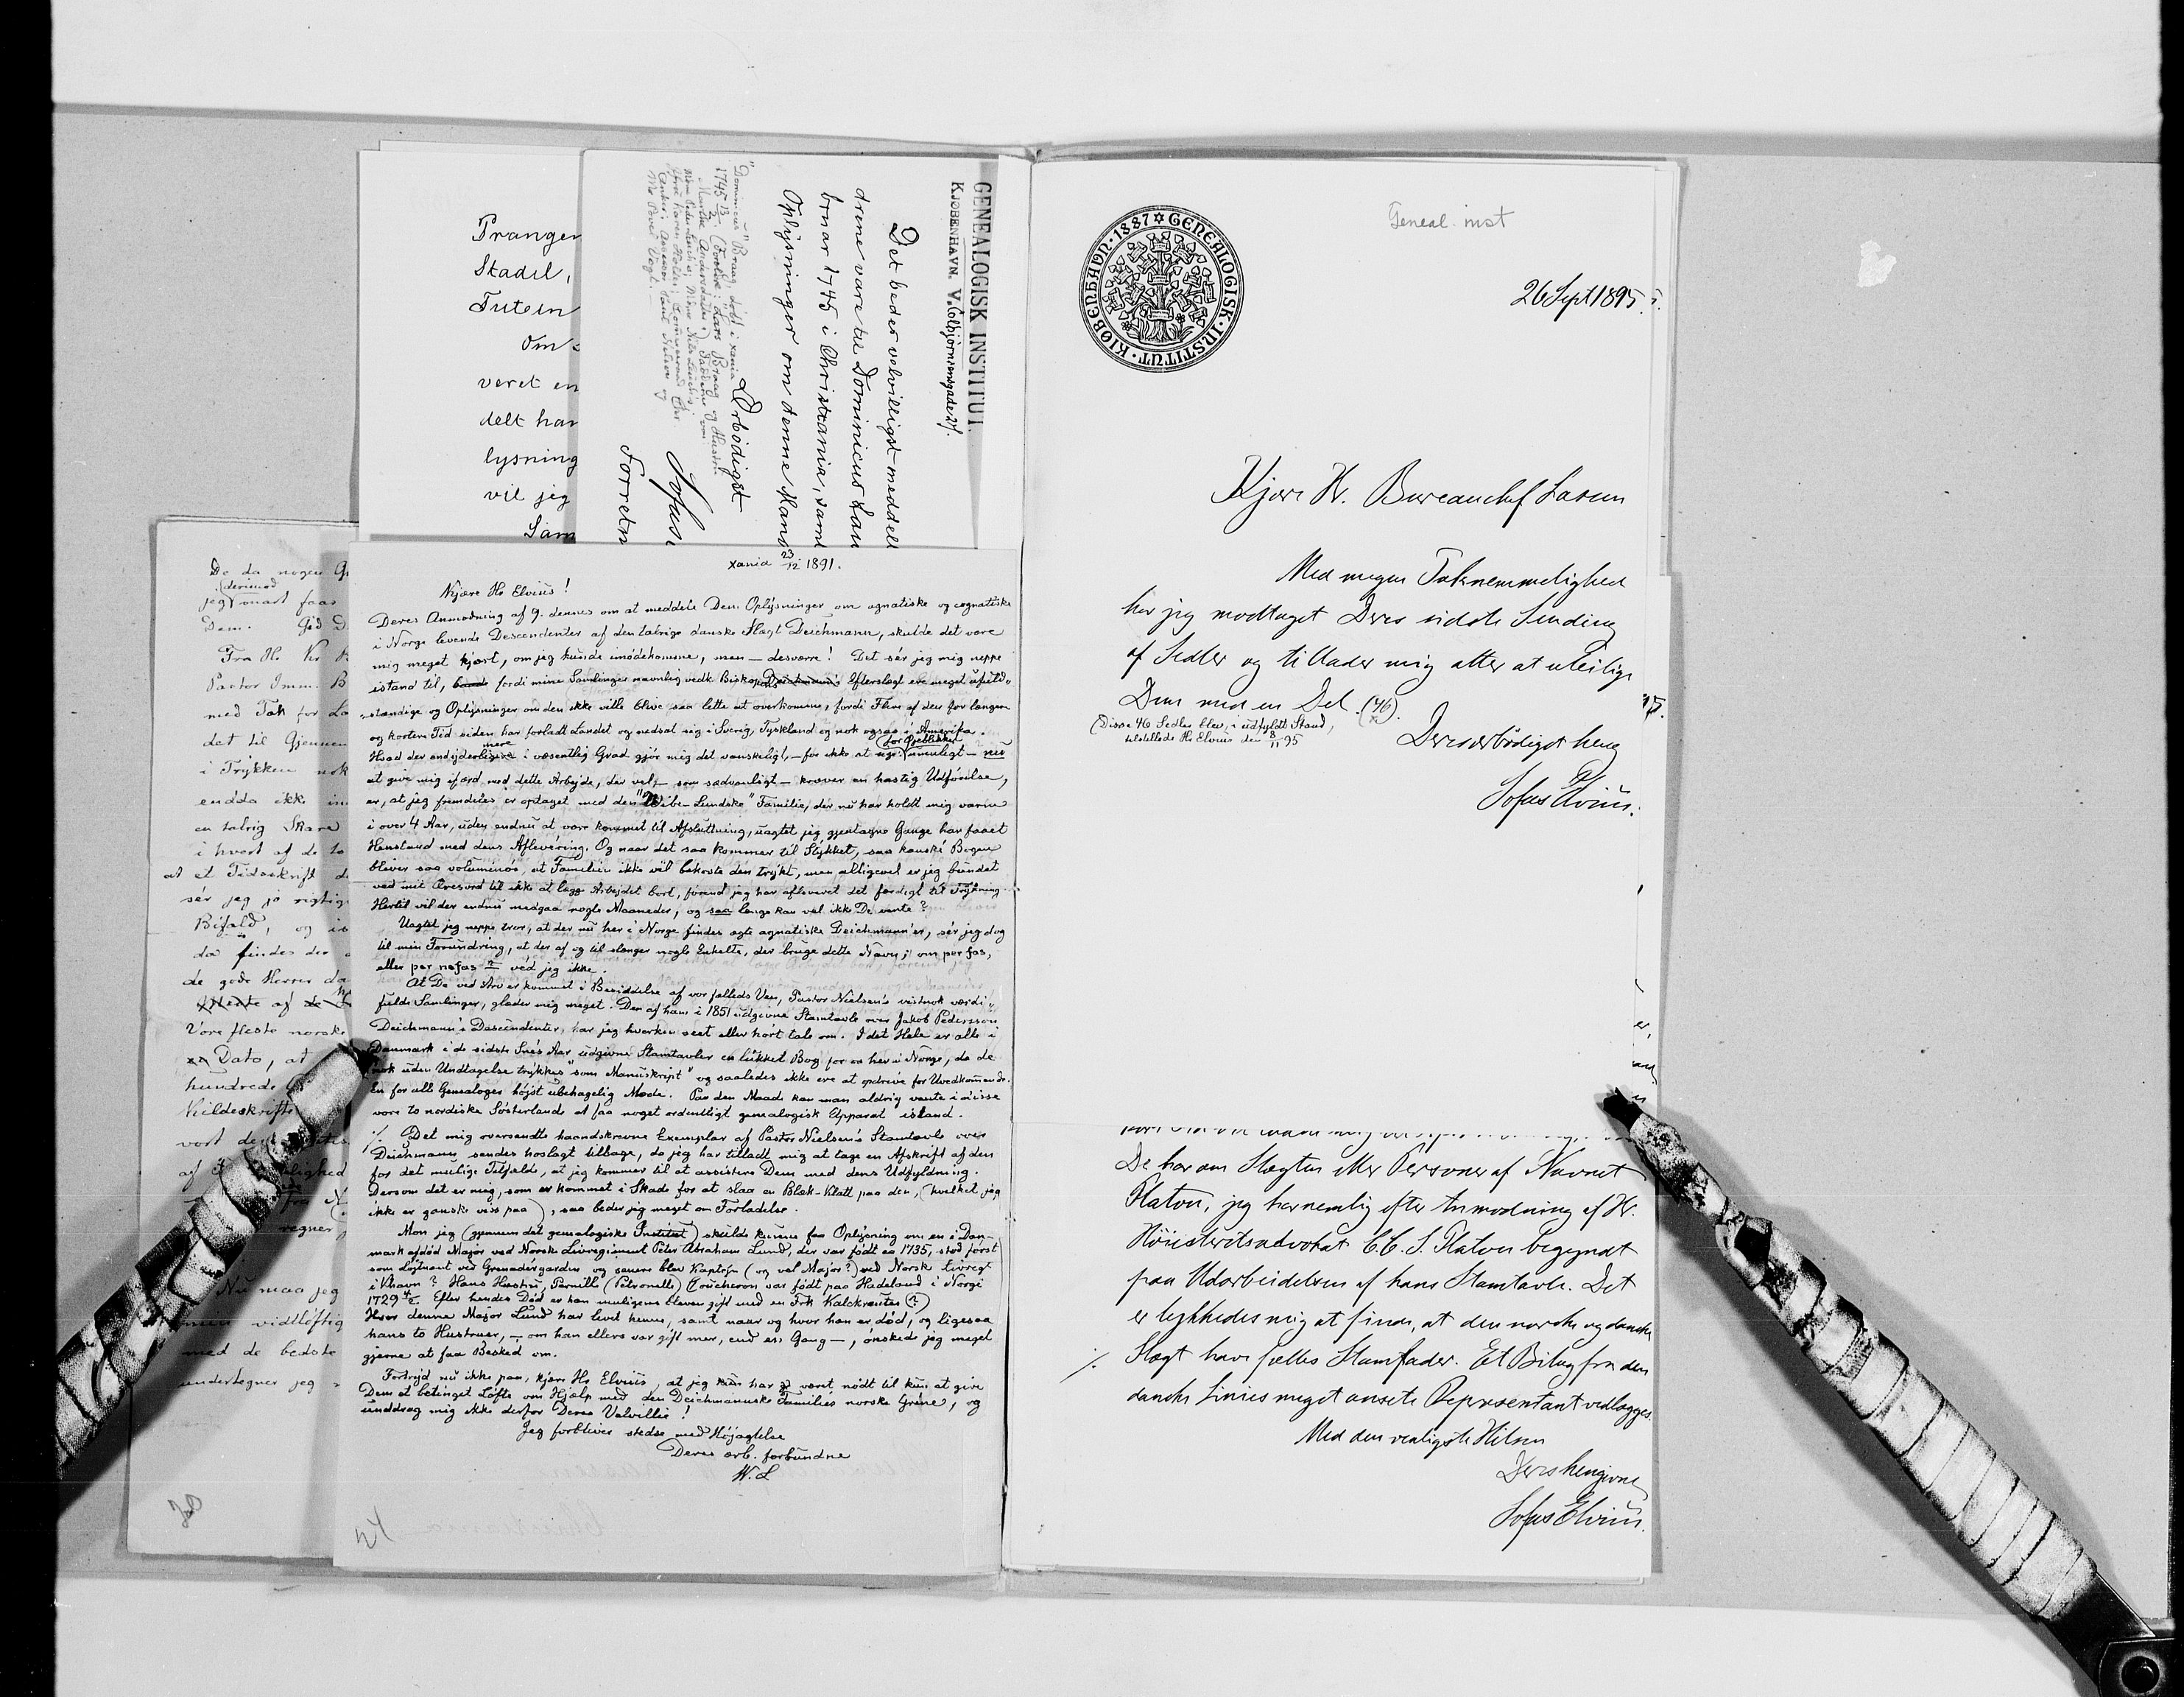 De da nogen
derimod
jeg snart faar
Dem. God
Fra Hr
Pastor Imm. B
med Tak for
det til Gjennem
i Trykken nok
endda ikke
en talrig Skare
i hvert af de to
at et Tidsskrift
sér jeg jo rigtig
Bifald, og
da findes der
de gode Herrer
af de
Vore fleste norske
Dato, at
hundrede
Kildeskrifte
vort
af
regner
Nu maa jeg
min vidtløftig
med de bedste
undertegner jeg
Pranger
Stadil,
Tutein
Om
veret en
delt har
lysning
vil jeg
Sam
GENEALOGISK INSTITUT.
KJØBENHAVN. V. Colbjørnsensgade 27.
Det bedes velvilligst meddelt
drene vare til Dominicus Lau
bruar 1745 i Christiania, saml
Oplysninger om denne Mans
Ærbødigst
Sofus
Forretn
"Dominicus" Braag, døbt i xania
1745 13/2. (Forældre: Lars Braag og Hustru
Marthe Andersdatter.) Faddere var:
xania 23/12 1891.
Kjære Hr Elvius!
Deres Anmodning af 9. dennes om at meddele Dem Oplysninger om agnatiske og cognatiske
i Norge levende Descendenter af den talrige danske Slægt Deichmann, skulde det være
mig meget kjært, om jeg kunde imødekomme, men – desværre! Det sér jeg mig neppe
istand til, fordi mine Samlinger navnlig vedk. Biskop Deichmann's Efterslægt ere meget ufuld-
stændige og Oplysninger om den ikke ville blive saa lette at overkomme, fordi Flere af den for længere
og kortere Tid siden har forladt Landet og nedsat sig i Sverig, Tyskland og nok ogsaa i Amerika.
for Øieblikket
Hvad der endyderligere mere i væsentlig Grad gjør mig det vanskeligt, – for ikke at sige: umuligt – nu
at give mig ifærd med dette Arbejde, der vel – som sædvanligt – kræver en hastig Udførelse,
er, at jeg fremdeles er optaget med den "Wibe-Lundske" Familie, der nu har holdt mig varm
i over 4 Aar, uden endnu at være kommet til Afsluttning, uagtet jeg gjentagne Gange har faaet
Henstand med dens Aflevering. Og naar det saa kommer til Stykket, saa kanské Bogen
bliver saa voluminøs, at Familien ikke vil bekoste den trykt, men alligevel er jeg bundet
ved mit Æresord til ikke at lægge Arbejdet bort, førend jeg har afleveret det færdigt til Trykning.
Hertil vil der endnu medgaa nogle Maaneder, og saa længe kan vel ikke De vente?
Uagtet jeg neppe tror, at der nu her i Norge findes ægte agnatiske Deichmann'er, sér jeg dog
til min Forundring, at der af og til slænger nogle Enkelte, der bruge dette Navn; om per fas,
eller per nefas – véd jeg ikke.
At De ved Arv er kommet i Besiddelse af vor fælleds Ven, Pastor Nielsen's vistnok værdi-
fulde Samlinger, glæder mig meget. Den af ham i 1851 udgivne Stamtavle over Jakob Pederssøn
Deichmann's Descendenter, har jeg hverken seet eller hørt tale om. I det Hele er alle i
Danmark i de sidste Snés Aar udgivne Stamtavler en lukket Bog for os her i Norge, da de
nok uden Undtagelse trykkes "som Manuskript" og saaledes ikke ere at opdrive for Uvedkommende.
En for alle Genealoger højst ubehagelig Mode. Paa den Maade kan man aldrig vente i disse
vore to nordiske Søsterlande at faa noget ordentligt genealogisk Apparat istand.
./. Det mig oversendte haandskrevne Exemplar af Pastor Nielsen's Stamtavle over
Deichmann sendes hoslagt tilbage, da jeg har tilladt mig at tage en Afskrift af den
for det mulige Tilfælde, at jeg kommer til at assistere Dem med dens Udfyldning.
Dersom det er mig, som er kommet i Skade for at slaa en Blæk-Klatt paa den, (hvilket jeg
ikke er ganske viss paa), saa beder jeg meget om Forladelse.
Mon jeg (gjennem det genealogiske Institut) skulde kunne faa Oplysning om en i Dan-
mark afdød Major ved Norske Livregiment Peter Abraham Lund, der var født ca 1735, stod først
som Løjtnant ved Grenadergarden og senere blev Kaptejn (og vel Major?) ved Norsk Livregt
i Khavn? Hans Hustru, Pernille (Petronelle) Coucheron var født paa Hadeland i Norge
1729. Efter hendes Død er han muligens bleven gift med en Frk Kalckreuter (?)
Hvor denne Major Lund har levet henne, samt naar og hvor han er død, og ligesaa
hans to Hustruer, – om han ellers var gift mer, end én Gang –, ønskede jeg meget
gjerne at faa Besked om.
Fortryd nu ikke paa, kjære Hr Elvius, at jeg har været nødt til kun at give
Dem et betinget Løfte om Hjælp med den Deichmannske Familiés norske Grene, og
unddrag mig ikke derfor Deres Velvillie!
Jeg forbliver stedse med Højagtelse
Deres ærb. forbundne
W. L
24
GENEALOGISK·INSTITUT·KIØBENHAVN·1887
Geneal. inst
26 Sept 1895.
Kjære Hr. Bureauchef Lassen
Med megen Taknemmelighed
har jeg modtaget Deres sidste Sending
af Sedler og tillader mig atter at uleilige
Dem med en Del (46).
(Disse 46 Sedler blev, i udfyldt Stand,
tilstillede Hr Elvius den 8/11 95
Deres ærbødigst heng
Sofus Elvius.
De har om Slægten eller Personer af Navnet
Platou, jeg har nemlig efter Anmodning af Hr.
Höiesteretsadvokat C.C.S. Platou begyndt
paa Udarbeidelsen af hans Stamtavle. Det
er lykkedes mig at finde, at den norske og danske
./. Slægt have fælles Stamfader. Et Bilag fra den
danske Linies meget ansete Repræsentant vedlægges.
Med den venligste Hilsen
Deres hengivne
Sofus Elvius.